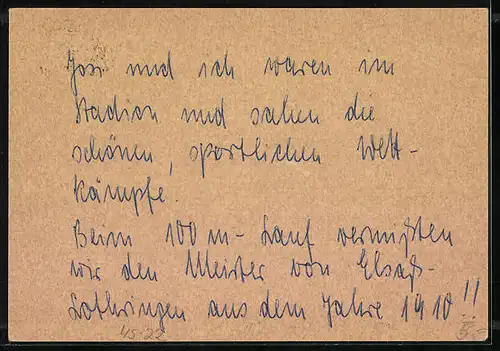 Josi und ich waren im
Stadion und sahen die
schönen, sportlichen Wett-
kämpfe.
Beim 100 m-Lauf vermißten
wir den Meister von Elsaß-
Lothringen aus dem Jahre 1910!!
45-22